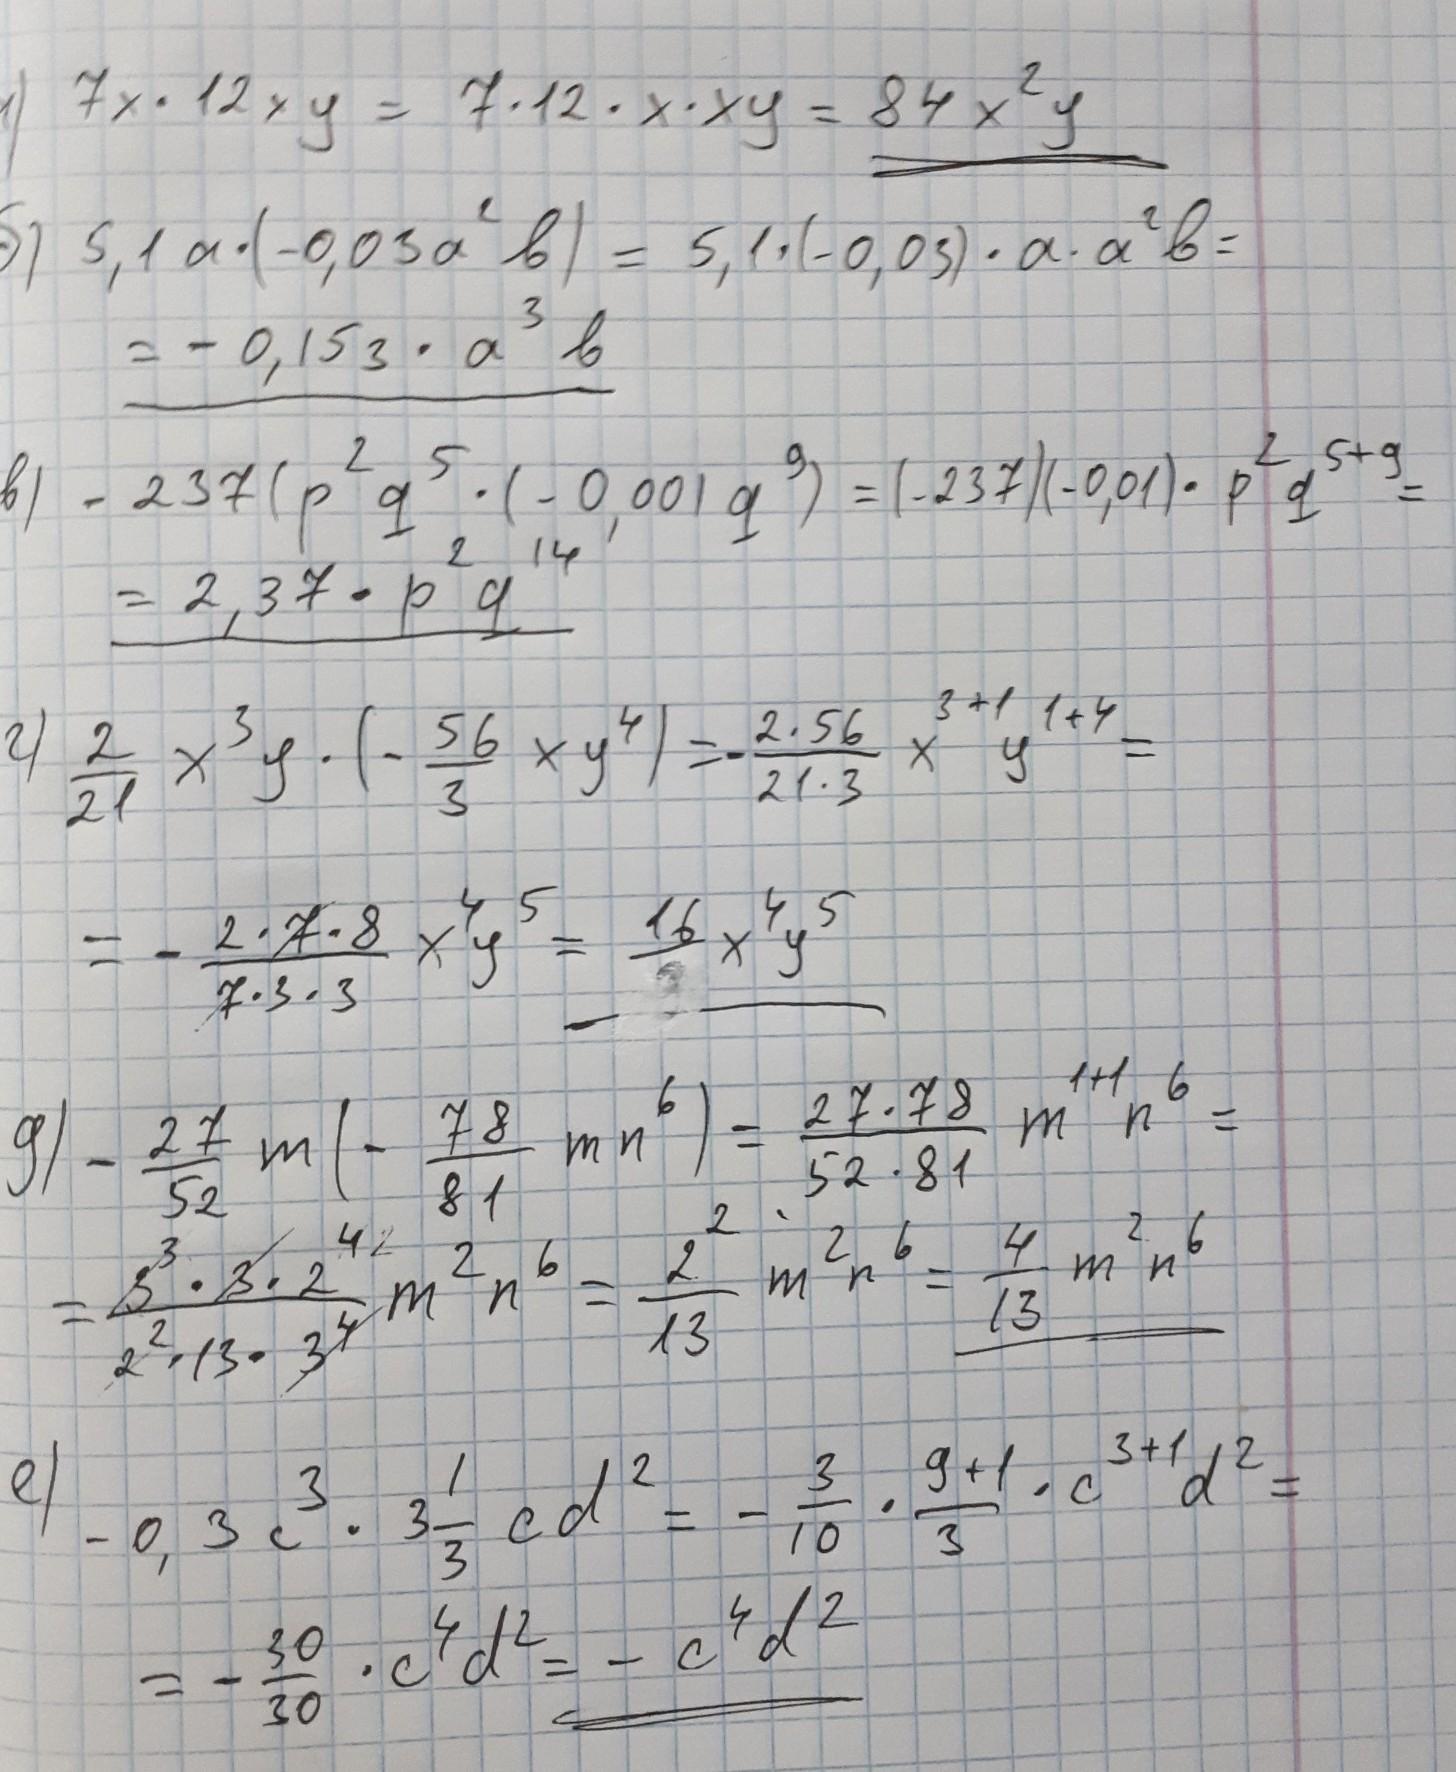 а) 7x · 12xy = 7 · 12 · x · xy = 84x²y
б) 5,1a · (-0,03a²b) = 5,1 · (-0,03) · a · a²b =
= -0,153 · a³b
в) -237(p²q⁵ · (-0,001q⁹) = (-237)(-0,01) · p²q⁵⁺⁹ =
= 2,37 · p²q¹⁴
г) 2/21 x³y · (-56/3 xy⁴) = -(2·56)/(21·3) x³⁺¹y¹⁺⁴ =
= -(2·7·8)/(7·3·3) x⁴y⁵ = 16/9 x⁴y⁵
д) -27/52 m(-78/81 mn⁶) = (27·78)/(52·81) m¹⁺¹n⁶ =
= (3³·3·2⁴)/(2²·13·3⁴) m²n⁶ = 2²/13 m²n⁶ = 4/13 m²n⁶
е) -0,3c³ · 3 1/3 cd² = -3/10 · (9+1)/3 · c³⁺¹d² =
= -30/30 · c⁴d² = -c⁴d²